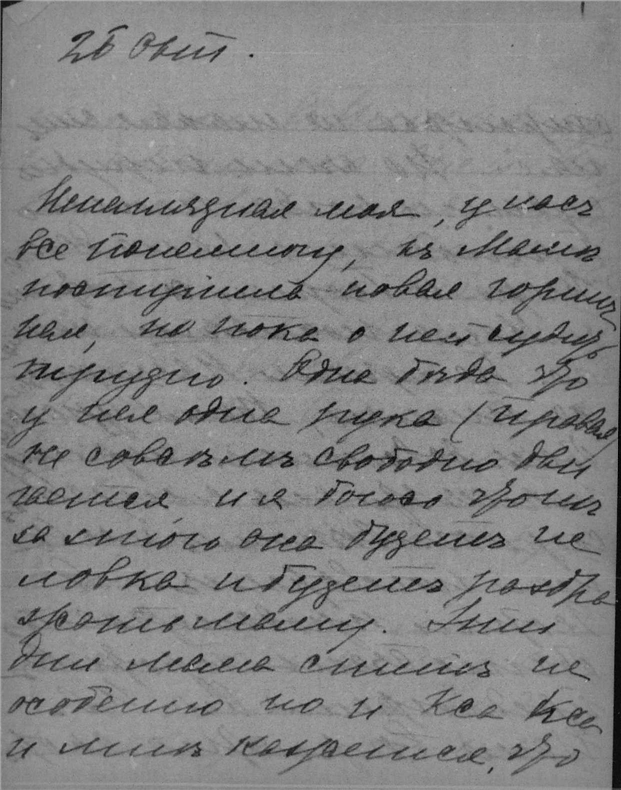 26 Окт.
Ненаглядная моя, у насъ
все понемногу, къ Мамѣ
поступила новая горнич
ная, но пока о ней судить
трудно. Одна бѣда что
у нея одна рука (правая)
не совсѣмъ свободно дви
гается и я боюсь что изъ
за этого она будетъ не
ловка и будетъ раздра
жать маму. Эти
дни мама спитъ не
особенно но и Кса Кса
и мнѣ кажется, что